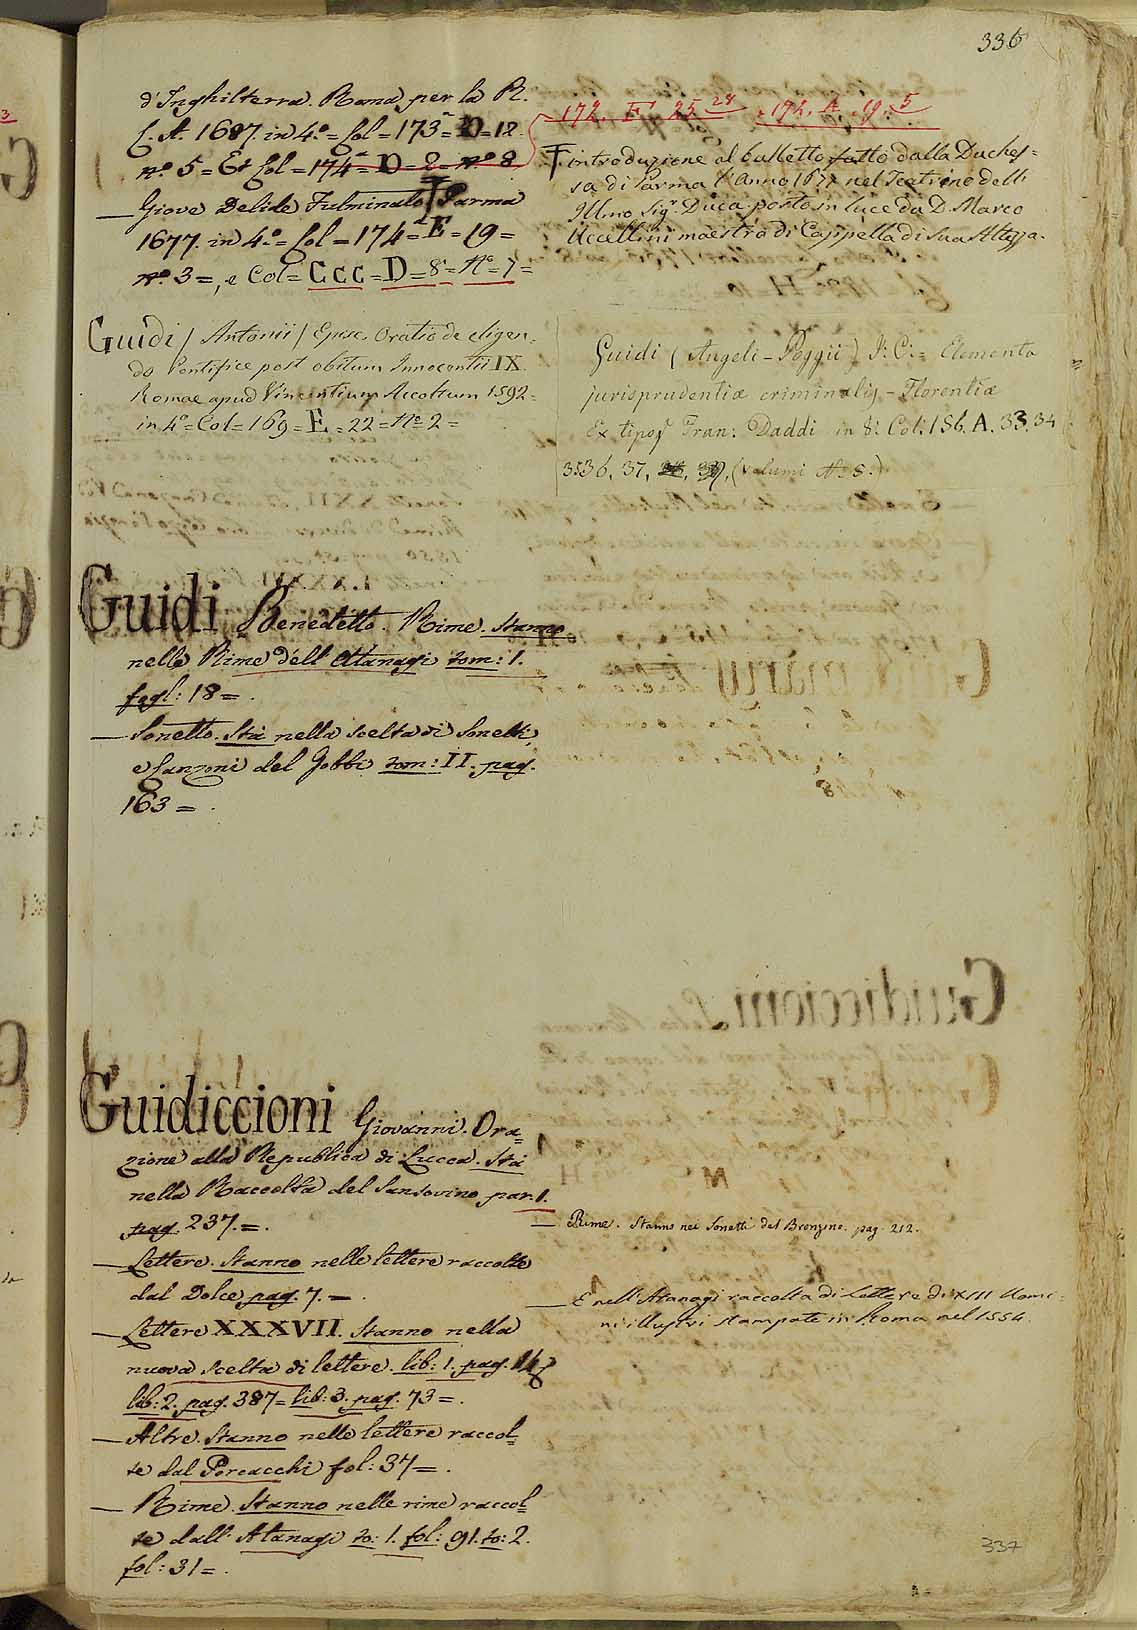 336
d'Inghilterra. Roma per la R.
C. A. 1687. in 4.º = Col = 173 = D = 12
nº. 5 = Et Col = 174 = D = 2 = nº. 8
— Giove Delide Fulminato Parma
1677. in 4.º = Col = 174 = E = 19 =
nº. 3 =, e Col = Ccc = D = 8 = Nº = 7 =
172. E 25 28 . 174. A . 19. 5
introduzione al balletto fatto dalla Duches=
sa di Parma l'anno 1677 nel Teatrino dell
Illmo Sigr. Duca posto in luce da D. Marco
Uccellini maestro di Cappella di Sua Altezza.
Guidi / Antonii / Episc. Oratio de eligen=
do Pontifice post obitum Innocentii IX.
Romae apud Vincentium Accoltum 1592 =
in 4º = Col = 169 = E = 22 = Nº 2 =
Guidi (Angeli - Poggii) J: C: = Elementa
jurisprudentiæ criminalis - Florentiæ
Ex tipog. Fran: Daddi in 8: Col: 186. A. 33. 34
35 36, 37, (volumi Nº 5.)
Guidi Benedetto. Rime. Stanno
nelle Rime dell' Atanagi tom: 1.
fogl: 18 = .
— Sonetto. Sta nella scelta di Sonetti,
e Canzoni del Gobbi tom: II. pag.
163 = .
Guidiccioni Giovanni. Ora=
zione alla Republica di Lucca. Sta
nella Raccolta del Sansovino par. 1.
pag. 237. = .
— Lettere. Stanno nelle lettere raccolte
dal Dolce pag. 7. = .
— Lettere XXXVII. Stanno nella
nuova scelta di lettere. lib: 1. pag.
lib: 2. pag. 387 = lib: 3. pag. 73 = .
— Altre. Stanno nelle lettere raccol=
te dal Porcacchi fol: 37 = .
— Rime. Stanno nelle rime raccol=
te dall' Atanagi to: 1. fol: 91. to: 2.
fol: 31 = .
— Rime. Stanno nei Sonetti del Bronzino. pag. 212.
— E nell' Atanagi raccolta di Lettere di XIII Uomi=
ni illustri stampate in Roma nel 1554.
337